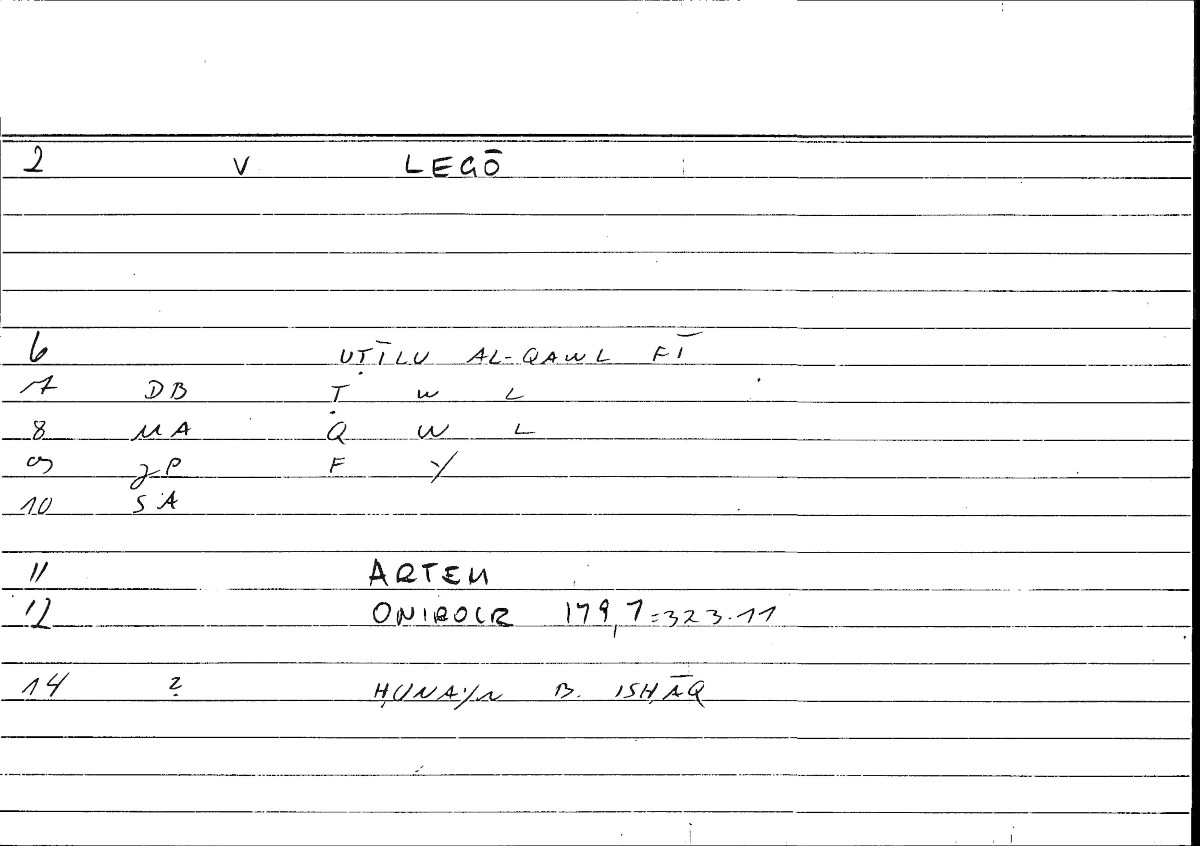 2 V LEGŌ
6 UṬĪLU AL-QAWL FĪ
7 DB Ṭ W L
8 MA Q W L
9 JP F Y
10 SA
11 ARTEM
12 ONIROCR 179,7=323.11
14 ? ḤUNAYN B. ISḤĀQ